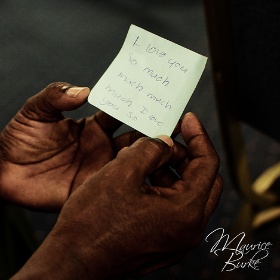 I love you
so much
much much
much I love
you so
Maurice
Burke